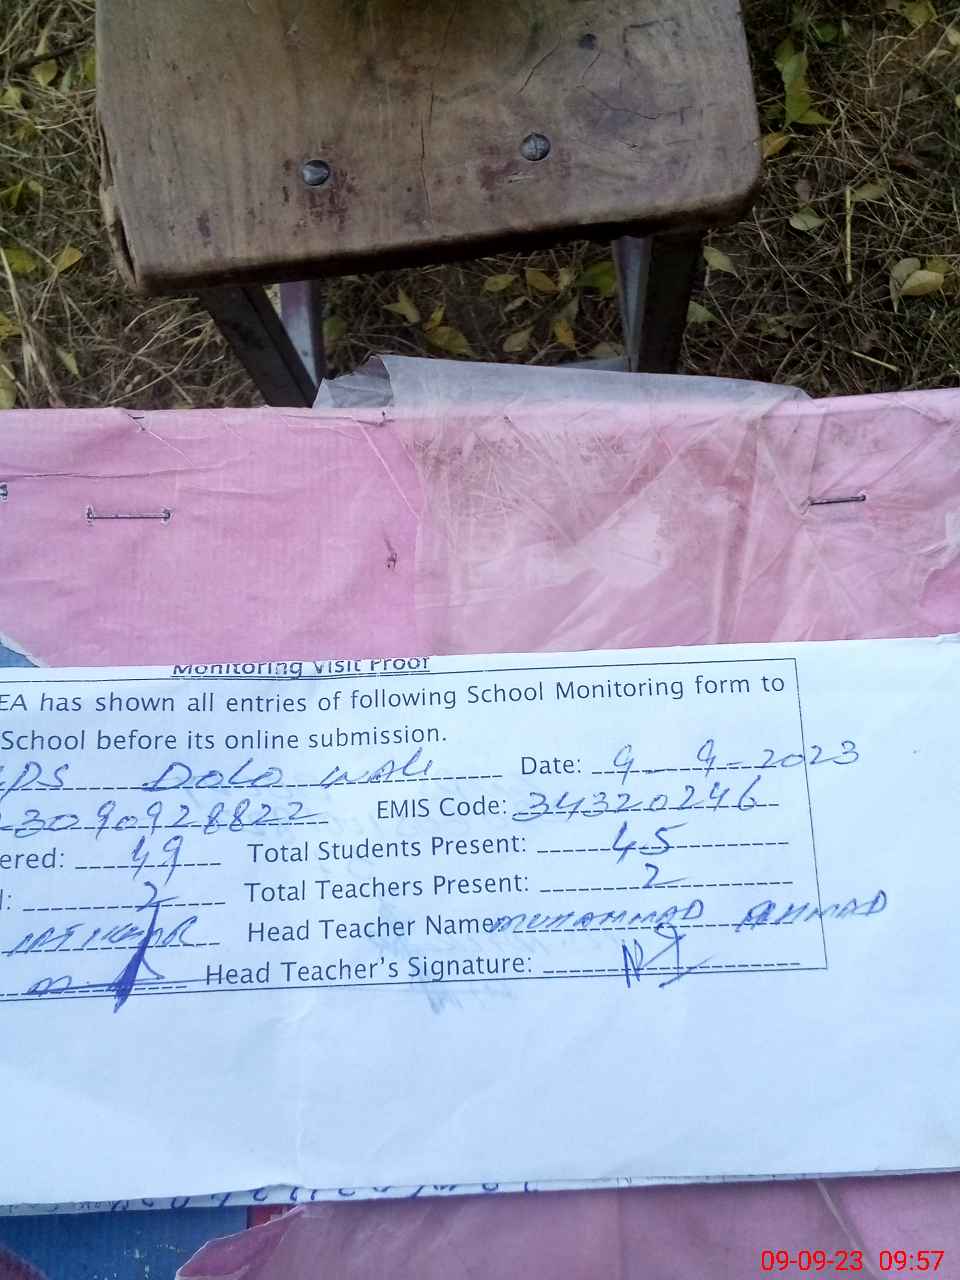 Monitoring Visit Proof
EA has shown all entries of following School Monitoring form to
School before its online submission.
PS DOLO WALI Date: 9-9-2023
3090928822 EMIS Code: 34320246
ered: 49 Total Students Present: 45
: 2 Total Teachers Present: 2
Head Teacher Name MUHAMMAD AHMAD
Head Teacher's Signature:
09-09-23 09:57